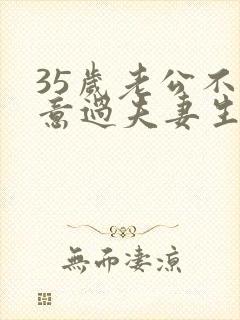 35歲老公不
意過夫妻生
無而淒涼